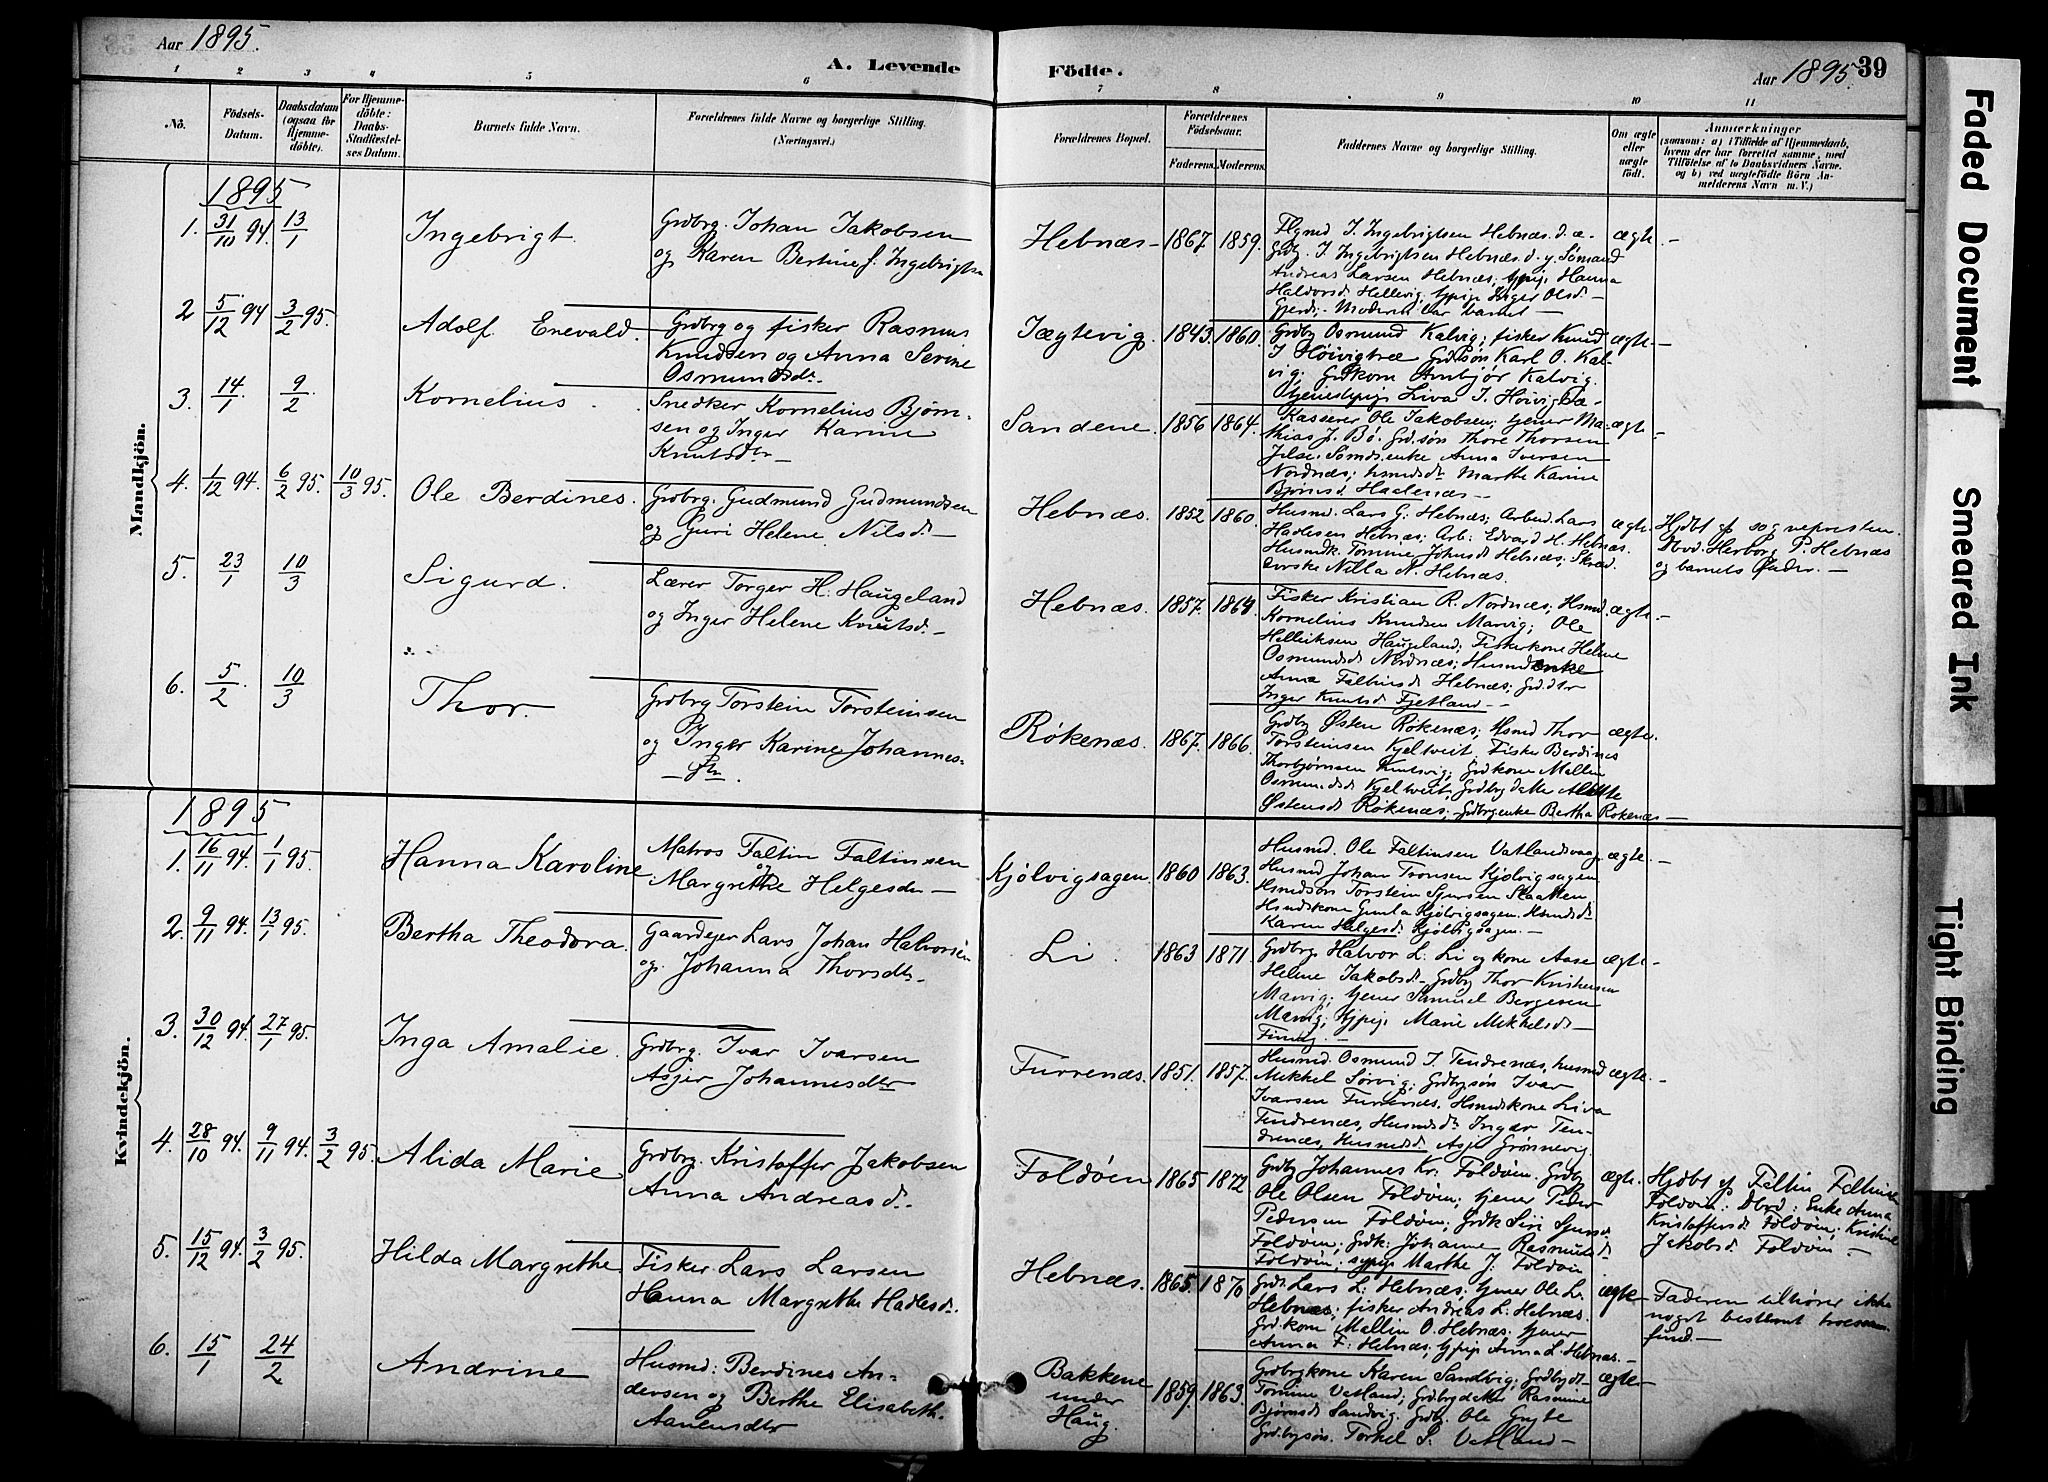 Aar 1895.
A. Levende Födte.
Aar 1895. 39
1 2 3 4 5 6 7 8 9 10 11
No.
Födsels-Datum.
Daabsdatum (ogsaa for Hjemmedöbte).
For Hjemmedöbte: Daabs-Stadfæstelses Datum.
Barnets fulde Navn.
Forældrenes fulde Navne og borgerlige Stilling. (Næringsvei.)
Forældrenes Bopæl.
Forældrenes Födselsaar.
Faderens. Moderens.
Faddernes Navne og borgerlige Stilling.
Om ægte eller uægte födt.
Anmærkninger
(saasom: a) i Tilfælde af Hjemmedaab, hvem der har forrettet samme, med Tilföielse af to Daabsvidners Navne. og b) ved uægtefödte Börn Anmelderens Navn m. V.)
Mandkjön.
1895
1. 31/10 94. 13/1 Ingebrigt. Grdbrg. Johan Jakobsen
og Karen Bertine J. Ingebrigts
Hebnæs 1867. 1859.
Flgmd J. Ingebrigtsen Hebnæs d. æ. ægte.
Grdbg. J. Ingebrigtsen Hebnæs d. y. Sømand
Andreas Larsen Hebnæs; tjpige Hanna
Haldorsd. Hellevig; tjpige Inger Olsd.
Gjerde. Moderen bar barnet
2 5/12 94 3/2 95. Adolf Enevald. Grdbrg og fisker Rasmus
Knudsen og Anna Serine
Osmundsdr.
Jægtevig. 1843. 1860.
Grdbg Osmund Kalvig; fisker Knud ægte.
J Høivigtræ Grdsøn Karl O. Kalvig; Grdkone Anbjør Kalvig.
Tjenestepige Liva J. Høivig
3. 14/1 9/2 Kornelius. Snedker Kornelius Bjørnsen og Inger Karine
Knutsdtr
Sandene. 1856 1864.
Kasserer Ole Jakobsen; tjener Mathias J. Bø. Grd.søn Thore Thorsen ægte.
Jelse; Sømds.enke Anna Iversen
Nordnæs; hsmdsdt Marthe Karine
Bjørnsd. Haalenæs
4. 1/12 94. 6/2 95. 10/3 95. Ole Berdines. Grdbrg. Gudmund Gudmundsen
og Guri Helene Nilsd.
Hebnæs. 1852 1860.
Husmd. Lars G. Hebnæs; Arbeid. Lars ægte.
Hadlesen Hebnæs; Arb. Edvard H. Hebnæs.
Husmdk. Tomine Johnsd. Hebnæs; Skræderske Nilla N. Hebnæs.
Hjdbt af sognepresten
Dbvd. Herborg P. Hebnæs
og barnets Fader.
5. 23/1 10/3 Sigurd. Lærer Torger H. Haugeland
og Inger Helene Knutsd.
Hebnæs. 1857. 1864.
Fisker Kristian R. Nordnæs; Hsmd. ægte.
Kornelius Knudsen Marvig; Ole
Helliksen Haugeland; Fiskerkone Helene
Osmundsd. Nordnæs; Husmdenke
Anna Faltinsd Hebnæs; Grd.dtr
Inger Knutsd Fjetland
6. 5/2 10/3 Thor. Grdbrg Torstein Torsteinsen
og Inger Karine Johannesdtr.
Røkenæs. 1867. 1866.
Grdbg Østen Røkenæs; Hsmd Thor ægte.
Torsteinsen Kjeltveit, Fisker Berdines
Thorbjørnsen Knutsvig; Grdkone Mallin
Osmundsd Kjeltveit; Grdbrgdatter Alette
Østensd Røkenæs; Grdbrgenke Bertha Røkenæs
Kvindekjön.
1895
1. 16/11 94. 1/1 95. Hanna Karoline Matros Faltin Faltinsen
og Margrethe Helgesdtr
Kjølvigsagen. 1860 1863.
Husmd. Ole Faltinsen Vatlandsvaag; ægte.
Husmd Johan Tronsen Kjølvigsagen
Hsmdsøn Torstein Sjursen Slaatten
Hsmdskone Gunla Kjølvigsagen. Hsmdsdt
Karen Helgesd Kjølvigsagen.
2. 9/11 94. 13/1 95. Bertha Theodora. Gaardejer Lars Johan Halvorsen
og Johanna Thorsdtr.
Li. 1863 1871.
Grdbrg. Halvor L. Li og kone Aase ægte.
Helene Jakobsd. Grdbg Thor Kristensen
Marvig; tjener Samuel Bergesen
Marvig; tjpige Marie Mikkelsd.
Finnøy.
3. 30/12 94. 27/1 95. Inga Amalie. Grdbrg. Ivar Ivarsen
Asjer Johannesdtr
Furrenæs. 1851. 1857.
Husmd. Osmund J. Tendrenæs, husmd ægte.
Mikkel Sørvig; Grdbgsøn Ivar
Ivarsen Furrenæs. Hsmdskone Liva
Tendrenæs, Husmdsdt Inger Tendrenæs, Husmdsdt Asje Grønnevig.
4. 28/10 94. 9/11 94. 3/2 95. Alida Marie Grdbrg. Kristoffer Jakobsen
Anna Andreasd.
Foldøen 1865 1872
Grdbg Johannes Kr. Foldøen. Grdbg ægte.
Ole Olsen Foldøen; tjener Peder
Pedersen Foldøen; Grdk Siri Sjursd
Foldøen; Grdk. Johanne Rasmusd.
Foldøen; sypige Marthe J. Foldøen
Hjdbt af Faltin Faltinsen
Foldøen: Dbvd: Enke Anna
Kristoffersd. Foldøen; Kristine
Jakobsd. Foldøen
5. 15/12 94. 3/2 95. Hilda Margrethe. Fisker Lars Larsen
Hanna Margrethe Hadlesd.
Hebnæs. 1865. 1870
Grdr. Lars L. Hebnæs; tjener Ole L. ægte
Hebnæs; fisker Andreas L. Hebnæs.
Grd.kone Mallin O. Hebnæs. tjener
Anna F. Hebnæs, tjpige Anna L. Hebnæs.
Faderen tilhører ikke
noget bestemt troessamfund.
6. 15/1 24/2 Andrine Husmd: Berdines Andersen og Berthe Elisabeth
Aanensdtr
Bakkene
under
Haug. 1859. 1863.
Grdbrgkone Karen Sandvig; Grdbgdt. ægte
Tomine Vatland; Grdbrgdatter Rasmine
Bjørnsd Sandvig. Grdbg. Ole Gryte
Grdbgsøn. Torkel S. Vatland
Faded Document
Smeared Ink
Tight Binding